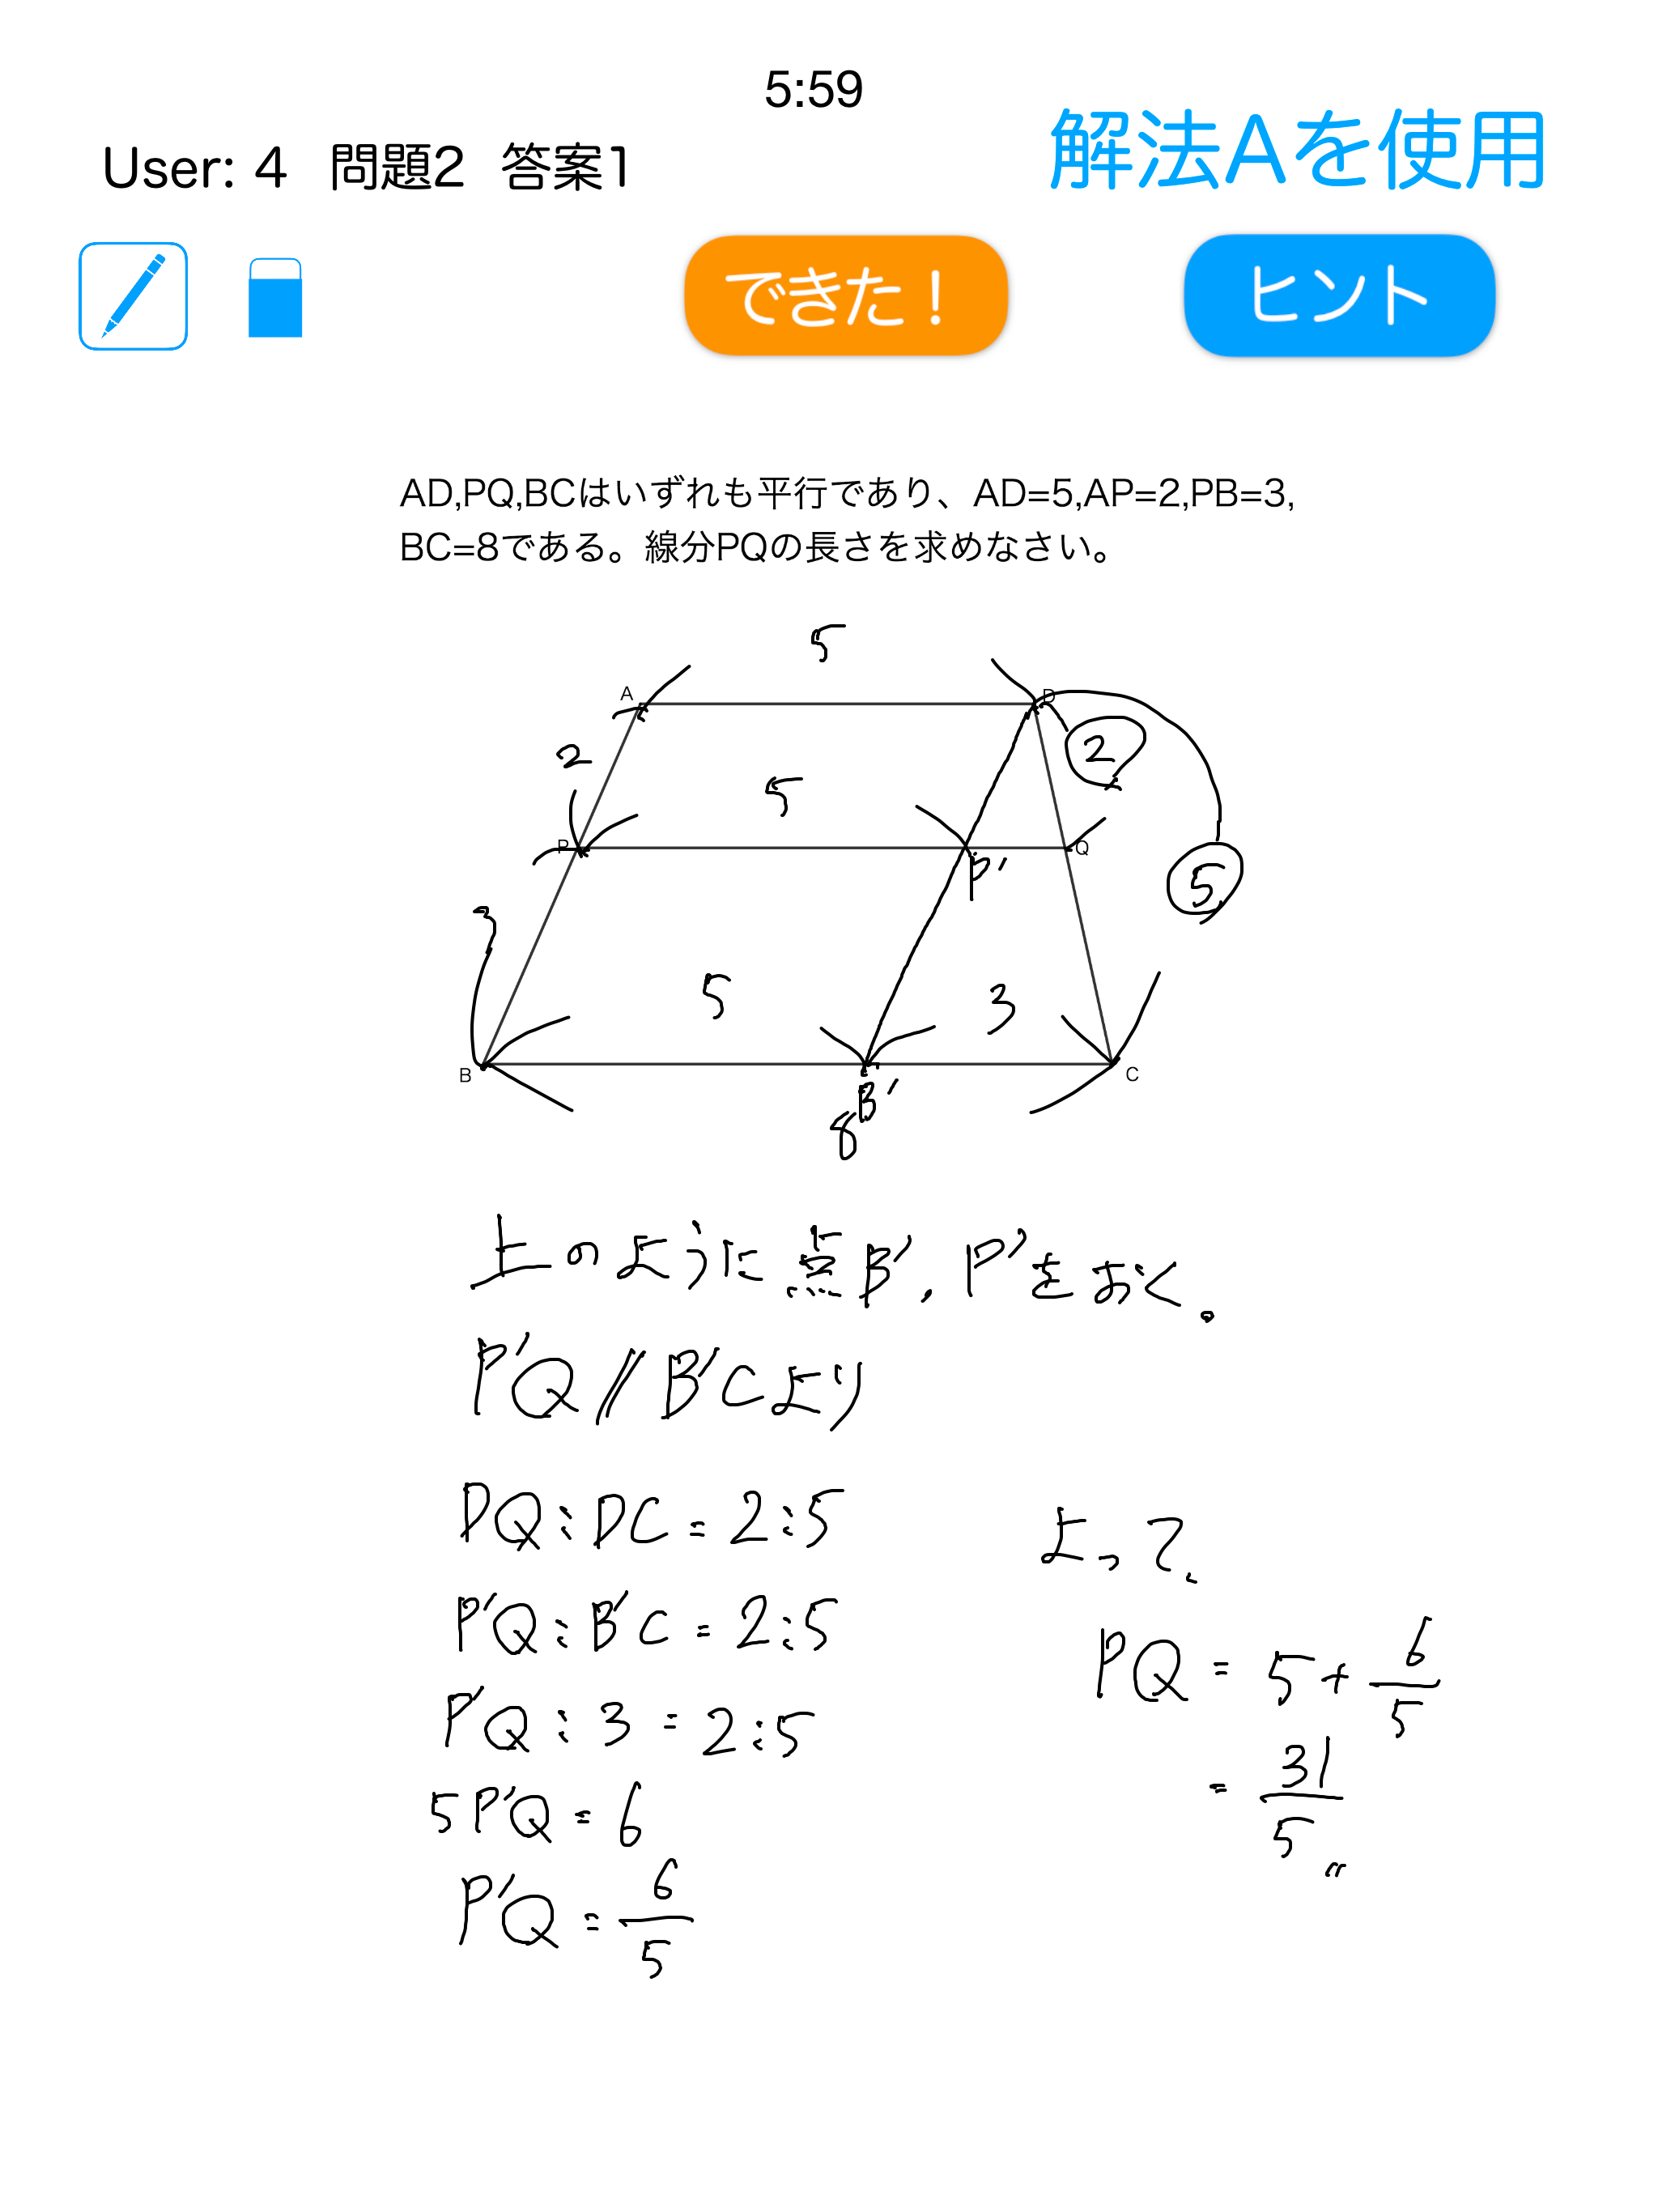 5:59
解法Aを使用
User: 4 問題2 答案1
できた！
ヒント
AD,PQ,BCはいずれも平行であり、AD=5,AP=2,PB=3,
BC=8である。線分PQの長さを求めなさい。
5
A
D
2
2
5
P
Q
P'
5
3
5
3
B
C
B'
8
上のように点B', P'をおく。
P'Q//B'Cより
DQ:DC=2:5
P'Q:B'C=2:5
P'Q:3=2:5
5P'Q=6
P'Q=6/5
よって、
PQ=5+6/5
=31/5〃